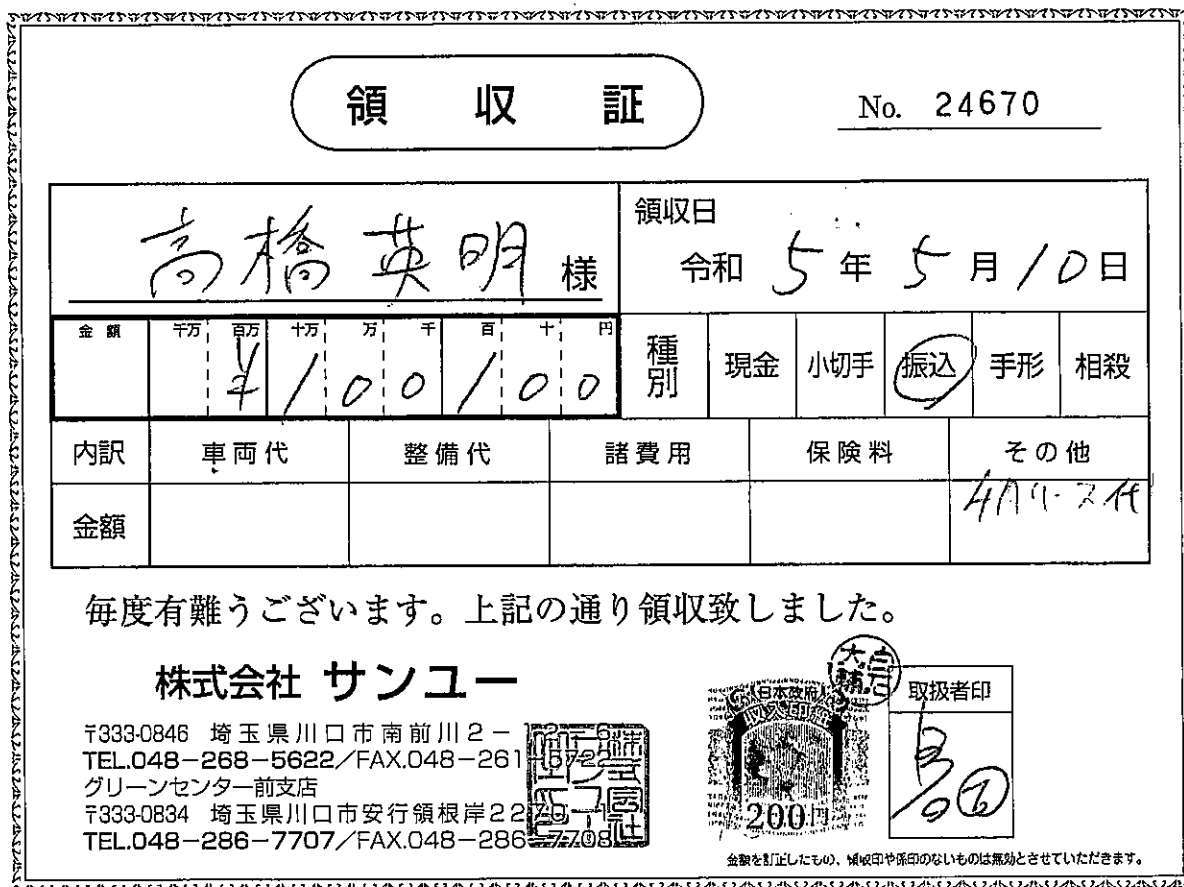 領収証
No. 24670
高橋英明 様
領収日
令和 5年 5月 10日
金額 千万 百万 十万 万 千 百 十 円
¥100100
種別 現金 小切手 振込 手形 相殺
内訳 車両代 整備代 諸費用 保険料 その他
金額 4月リース代
毎度有難うございます。上記の通り領収致しました。
株式会社 サンユー
〒333-0846 埼玉県川口市南前川2-
TEL.048-268-5622/FAX.048-261-6722
グリーンセンター前支店
〒333-0834 埼玉県川口市安行領根岸2270-1
TEL.048-286-7707/FAX.048-286-7708
日本政府
収入印紙
200円
取扱者印
金額を訂正したもの、領収印や係印のないものは無効とさせていただきます。